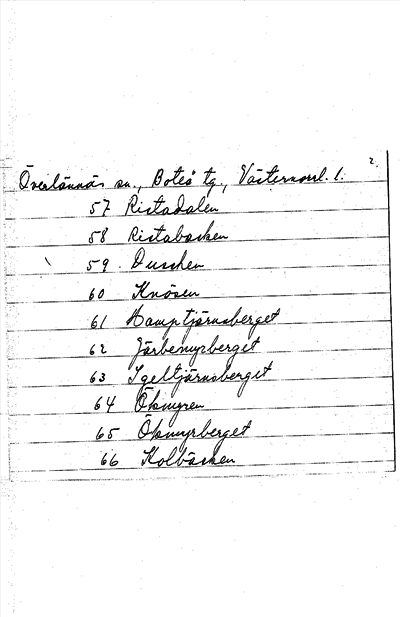 2.
Överlännäs sn., Boteå tg., Västernorrl. l.
57 Ristadalen
58 Ristabacken
59 Duschen
60 Knösen
61 Hamptjärnsberget
62
63 Igeltjärnsberget
64 Ökmyren
65 Ökmyrberget
66 Kolbäcken